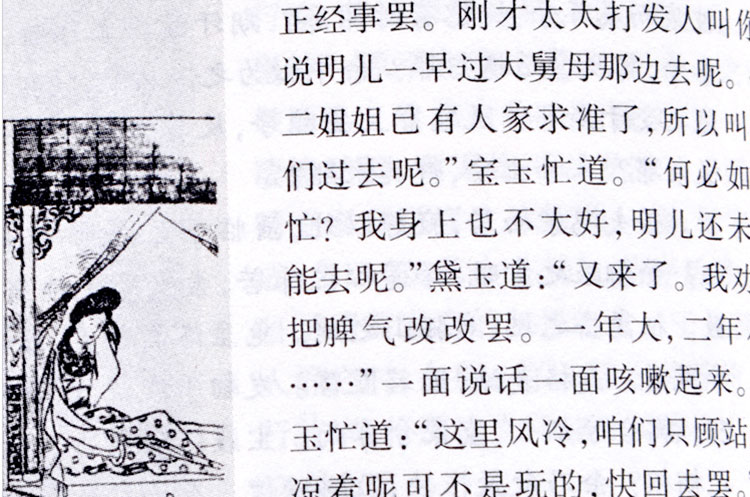 正经事罢。刚才太太打发人叫你
说明儿一早过大舅母那边去呢。
二姐姐已有人家求准了,所以叫
们过去呢。”宝玉忙道。“何必如
忙?我身上也不大好,明儿还未
能去呢。”黛玉道:“又来了。我劝
把脾气改改罢。一年大,二年
……”一面说话一面咳嗽起来。
玉忙道:“这里风冷,咱们只顾站
凉着呢可不是玩的,快回去罢。